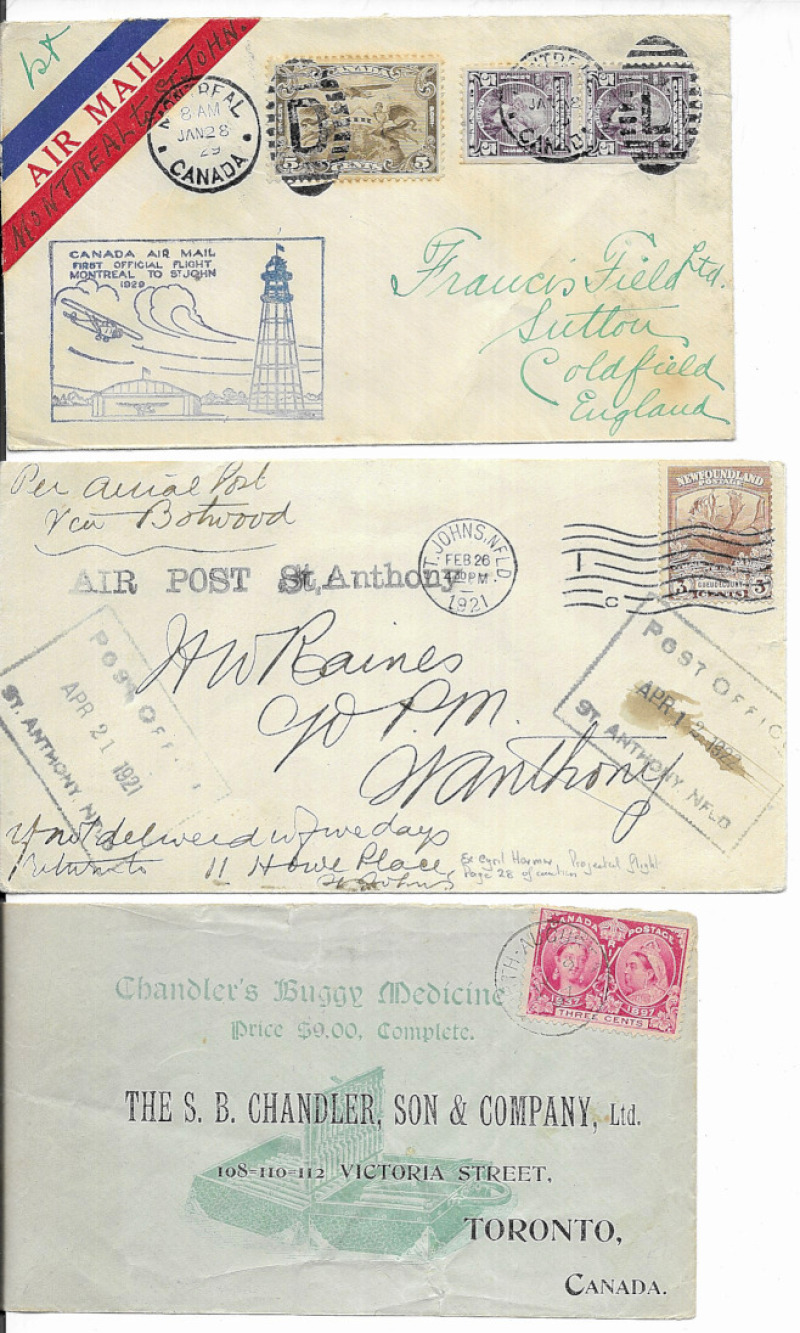 1st
AIR MAIL
MONTREAL to ST JOHN.
MONTREAL
8 AM
JAN 28
29
CANADA
CANADA
5 CENTS 5
MONTREAL
JAN 28
CANADA
CANADA AIR MAIL
FIRST OFFICIAL FLIGHT
MONTREAL TO ST JOHN
1929
Francis Field Ltd.
Sutton
Coldfield
England
Per Aerial Post
Via Botwood
AIR POST St, Anthony
ST. JOHNS, NFLD.
FEB 26
PM
1921
NEWFOUNDLAND
POSTAGE
3 CENTS 3
H W Raines
P.M.
St Anthony
POST OFFICE
APR 21 1921
ST. ANTHONY, NFLD
POST OFFICE
APR 12 192
ST. ANTHONY, NFLD
If not delivered in five days
Return to 11 Howe Place
St Johns
Ex Cyril Harmer, Projected flight
Page 28 of
CANADA POSTAGE
V R I
1837 1897
THREE CENTS
Chandler's Buggy Medicine
Price $9.00, Complete.
THE S. B. CHANDLER, SON & COMPANY, Ltd.
108=110=112 VICTORIA STREET,
TORONTO,
CANADA.